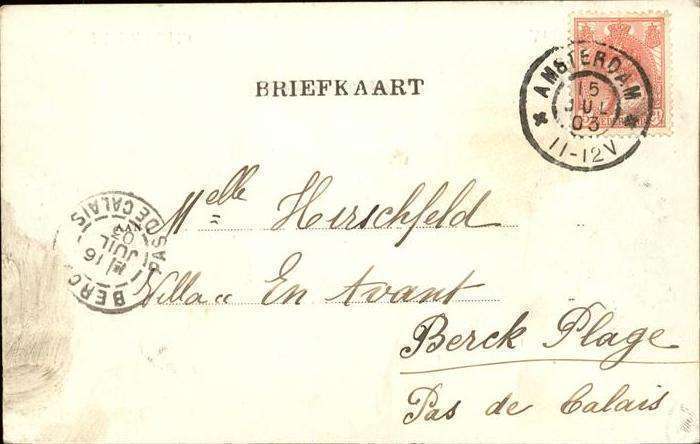 BRIEFKAART
AMSTERDAM
15
JUL
03
11-12V
Melle Hirschfeld
Villa "En Avant
Berck Plage
Pas de Calais
PAS DE CALAIS
16
JUIL
03
BERC
AAN